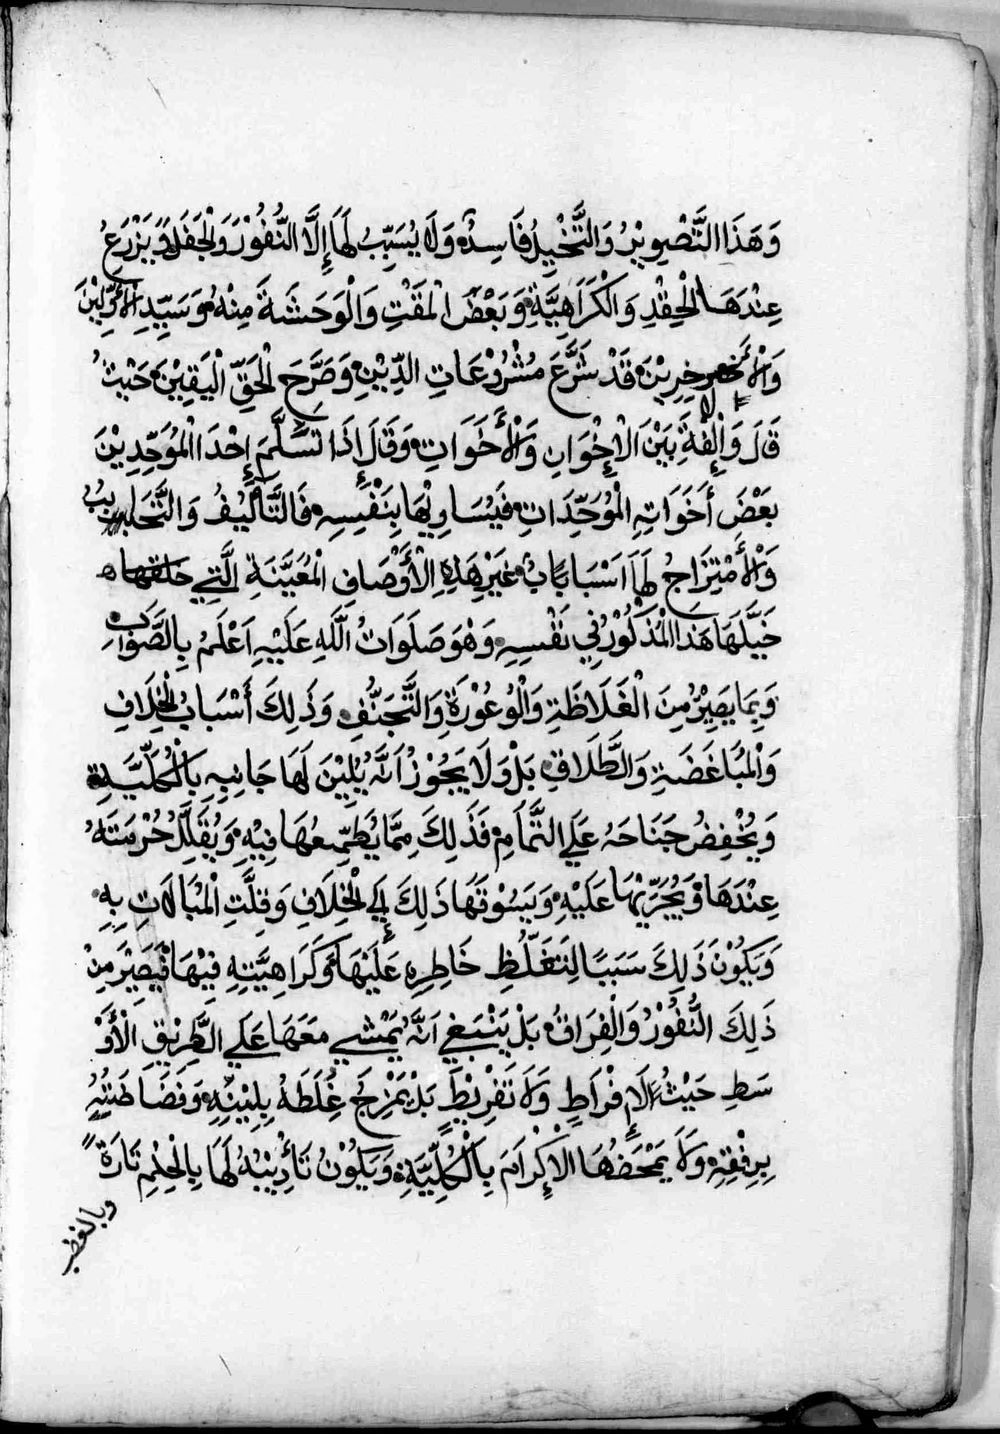 وَهَذَا التَّصْوِيْرُ وَالتَّخْيِيلُ فَاسِدٌ وَلَا يُسَبِّبُ لَهَا إِلَّا النُّفُوْرَ وَالْجَفَلَ وَيَزْرَعُ
عِنْدَهَا الْحِقْدِ وَالْكَرَاهِيَّةِ وَبَعْضَ الْمَقْتِ وَالْوَحَشَةَ مِنْهُ وَسَيِّدِ الْأَوَّلِيْنَ
وَالْأَخِرِيْنَ قَدْ شَرَّعَ مُشْرُوْعَاتِ الدِّيْنِ وَصَرَّحَ الْحَقِّ الْيَقِيْنَ حَيْثُ
قَالَ وَإِلْفَةِ بَيْنَ الْإِخْوَانِ وَالْأَخَوَاتِ وَقَالَ إِذَا تَسَلَّمَ إِحْدَا الْمُوَحِّدِيْنَ
بَعْضَ أَخَوَاتِهِ الْمُوَحِّدَاتِ فَيُسَاوِيْهَا بِنَفْسِهِ فَالتَّأْلِيْفُ وَالتَّحَابُبُ
وَالْأَمْتِزَاجُ لَهَا اَسْبَابًا غَيْرَ هَذِهِ الْأَوْصَافِ الْمُعَيَّنَةِ الَّتِي خَلَقَهَا
خَيَّلَهَا هَذَا الْمَذْكُوْرُ فِي نَفْسِهِ وَهْوَ صَلَوَاتُ اللَّهِ عَلَيْهِ اَعْلَمُ بِالصَّوَابِ
وَبِمَا يَصِيْرُ مِنَ الْغَلَاظَةِ وَالْوُعُوْرَةِ وَالتَّجَنُّفِ وَذَلِكَ أَسْبَابُ الْخِلَافِ
وَالْمُبَاغَضَةِ وَالطَّلَاقِ بَلْ وَلَا يَجُوْزُ اَنَّهُ يُلِيْنَ لَهَا جَانِبِهِ بِالْكُلِّيَّةِ
وَيُخْفِضُ جَنَاحَهُ عَلَي التَّمَامِ فَذَلِكَ مِمَّا يُطَمِّعُهَا فِيْهِ وَيُقَلِّلُ حُرْمَتَهُ
عِنْدَهَا وَيُجَرِّيْهَا عَلَيْهِ وَيَسُوْقَهَا ذَلِكَ إِلَي الْخِلَافِ وَقِلَّتِ الْمُبَالَاتِ بِهِ
وَيَكُوْنَ ذَلِكَ سَبَبًا لِتَغَلُّظِ خَاطِرِهِ عَلَيْهَا وَكَرَاهِيَّتِهِ فِيْهَا فَيَصِيْرَ مِنْ
ذَلِكَ النُّفُوْرُ وَالْفِرَاقُ بَلْ يَنْبَغِي اَنَّهُ يَمْشِي مَعَهَا عَلَي الطَّرِيْقِ الْأَوْ
سَطِ حَيْثُ لَا إِفْرَاطٍ وَلَا تَفْرِيْطَ بَلْ يَمْزِجَ غِلَظَهُ بِلِيْنِهِ وَفَضَاظَتِهِ
بِرِفْقِهِ وَلَا يَمْحَضُهَا الْإِكْرَامَ بِالْكُلِّيَّةِ وَيَكُوْنُ تَأْدِيْبُهُ لَهَا بِالْحِلْمِ تَارَةً
وبالغضب